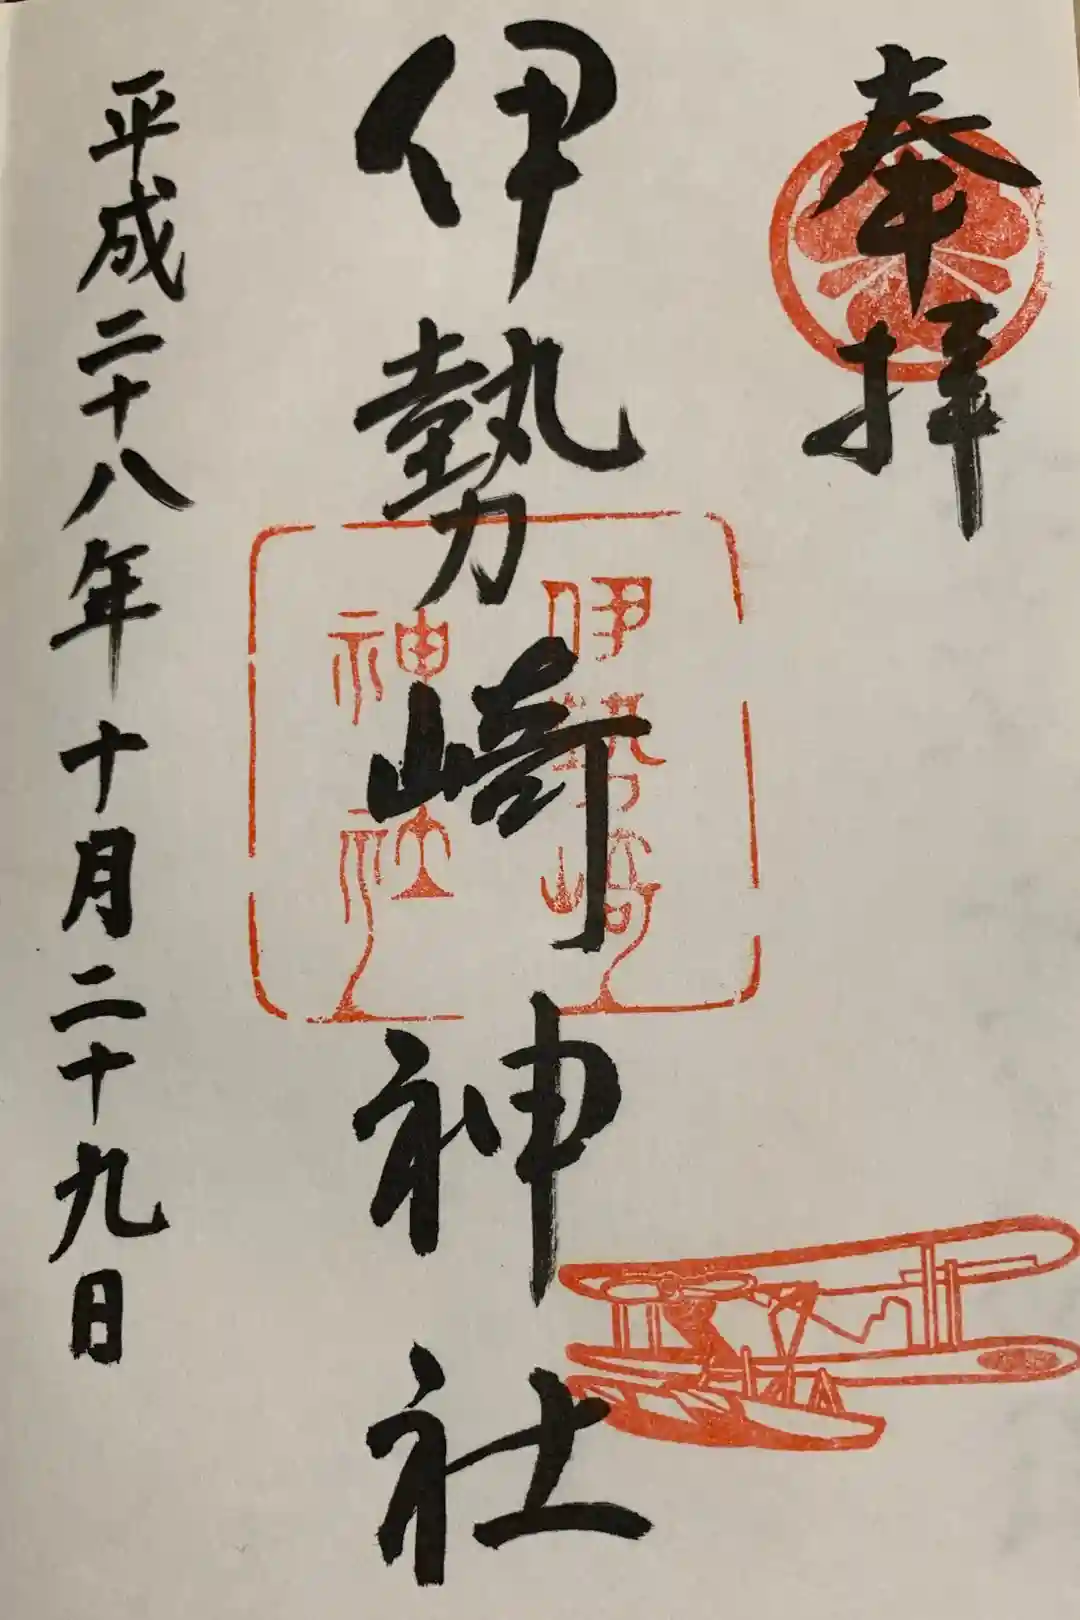 奉拝
伊勢崎神社
伊勢崎
神社
平成二十八年十月二十九日